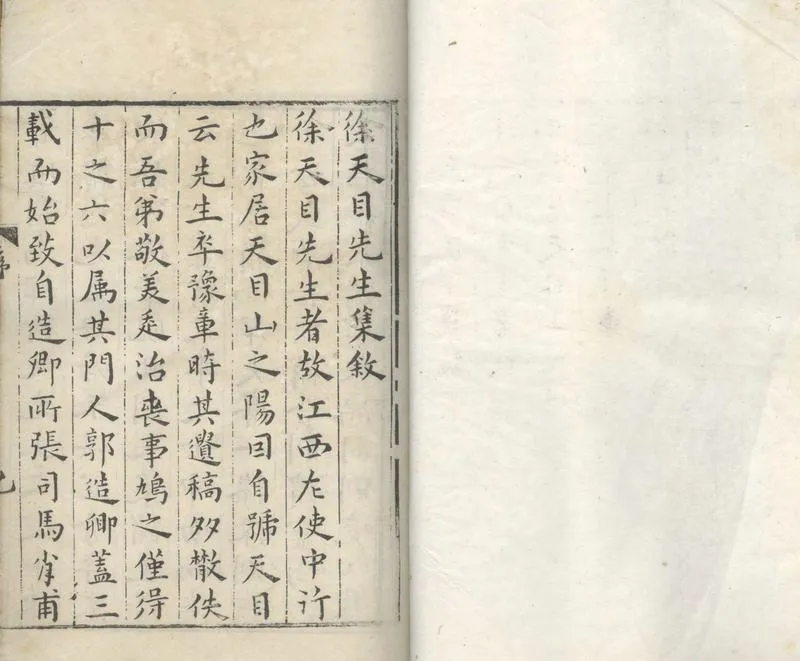 徐天目先生集敘
徐天目先生者故江西左使中行
也家居天目山之陽因自號天目
云先生卒豫章時其遺稿多散佚
而吾弟敬美走治喪事鳩之僅得
十之六以属其門人郭造卿蓋三
載而始致自造卿所張司馬肖甫
序